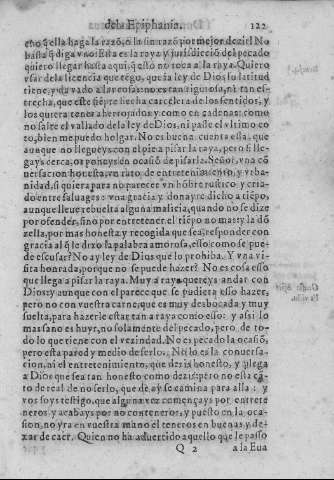 de la Epiphania. 122
eño q̃ ella haga la razõ, o la sinrazõ por mejor dezir? No
basta q̃ diga vno: Esta es la raya y jurisdicciõ del pecado
quiero llegar hasta aqui, q̃ estõ no toca a la raya. Quiero
vsar de la licencia que tẽgo, que la ley de Dios su latitud
tiene, y da vado a las cosas: no es tan rigurosa, ni tan es-
trecha, que este siẽpre hecha carcelera de los sentidos, y
los quiera tener aherrojados y como en cadenas: como
no salte el vallado de la ley de Dios, ni passe el vltimo co
to, bien me puedo holgar. No es buena cuenta essa: que
aunque no llegueys con el pie a pisar la raya, pero si lle-
gays cerca, os poneys en ocasiõ de pisarla. Señor, vna cõ
uersacion honesta, vn rato de entretenimiento, y vrba-
nidad, si quiera para no parecer vn hõbre rustico y cria-
do entre saluages: vna gracia y donayre dicho a tiẽpo,
aunque lleue rebuelta alguna malicia, quando no se dize
por ofender, sino por entretener el tiẽpo no mas: y la dõ
zella, por mas honesta y recogida que sea, responder con
gracia al q̃ le dixo la palabra amorosa, esso como se pue-
de escusar? No ay ley de Dios que lo prohiba. Y vna vi-
sita honrada, porque no se puede hazer? No es cosa esso
que llega a pisar la raya. Muy a raya quereys andar con
Dios: y aunque con el parece que se pudiera esso hazer,
pero no con vuestra carne, que es muy desbocada y muy
suelta, para hazerle estar tan a raya como esso: y assi lo
mas sano es huyr, no solamente del pecado, pero de to-
do lo que tiene con el vezindad. No es pecado la ocasiõ,
pero esta pared y medio de serlo. Ni lo es la conuersa-
cion, ni el entretenimiento, que dezis honesto, y plega
a Dios que sea tan honesto como dezis: pero no esta cã-
to de real de no serlo, que de ay se camina para alla: y
vos soys testigo, que alguna vez començays por entrete
neros y acabays por no conteneros, y puesto en la oca-
sion, no yra en vuestra mano el teneros en buenas y de-
xar de caer. Quien no ha aduertido aquello que le passo
Q 2 a la Eua